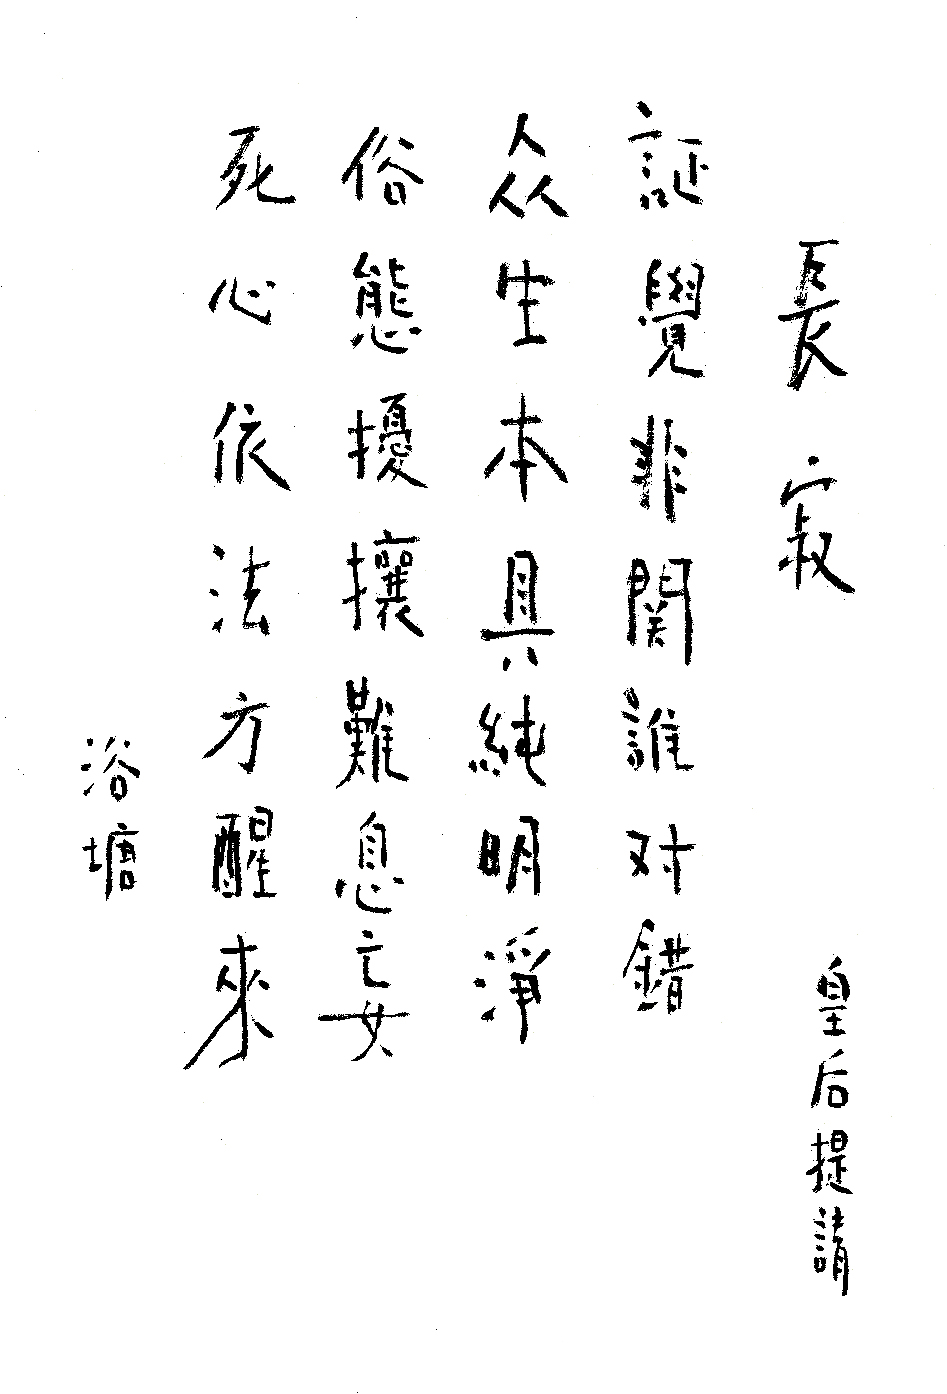 長寂
皇后提請
証覺非関誰对错
众生本具純明淨
俗態擾攘難息妄
死心依法方醒來
浴塘